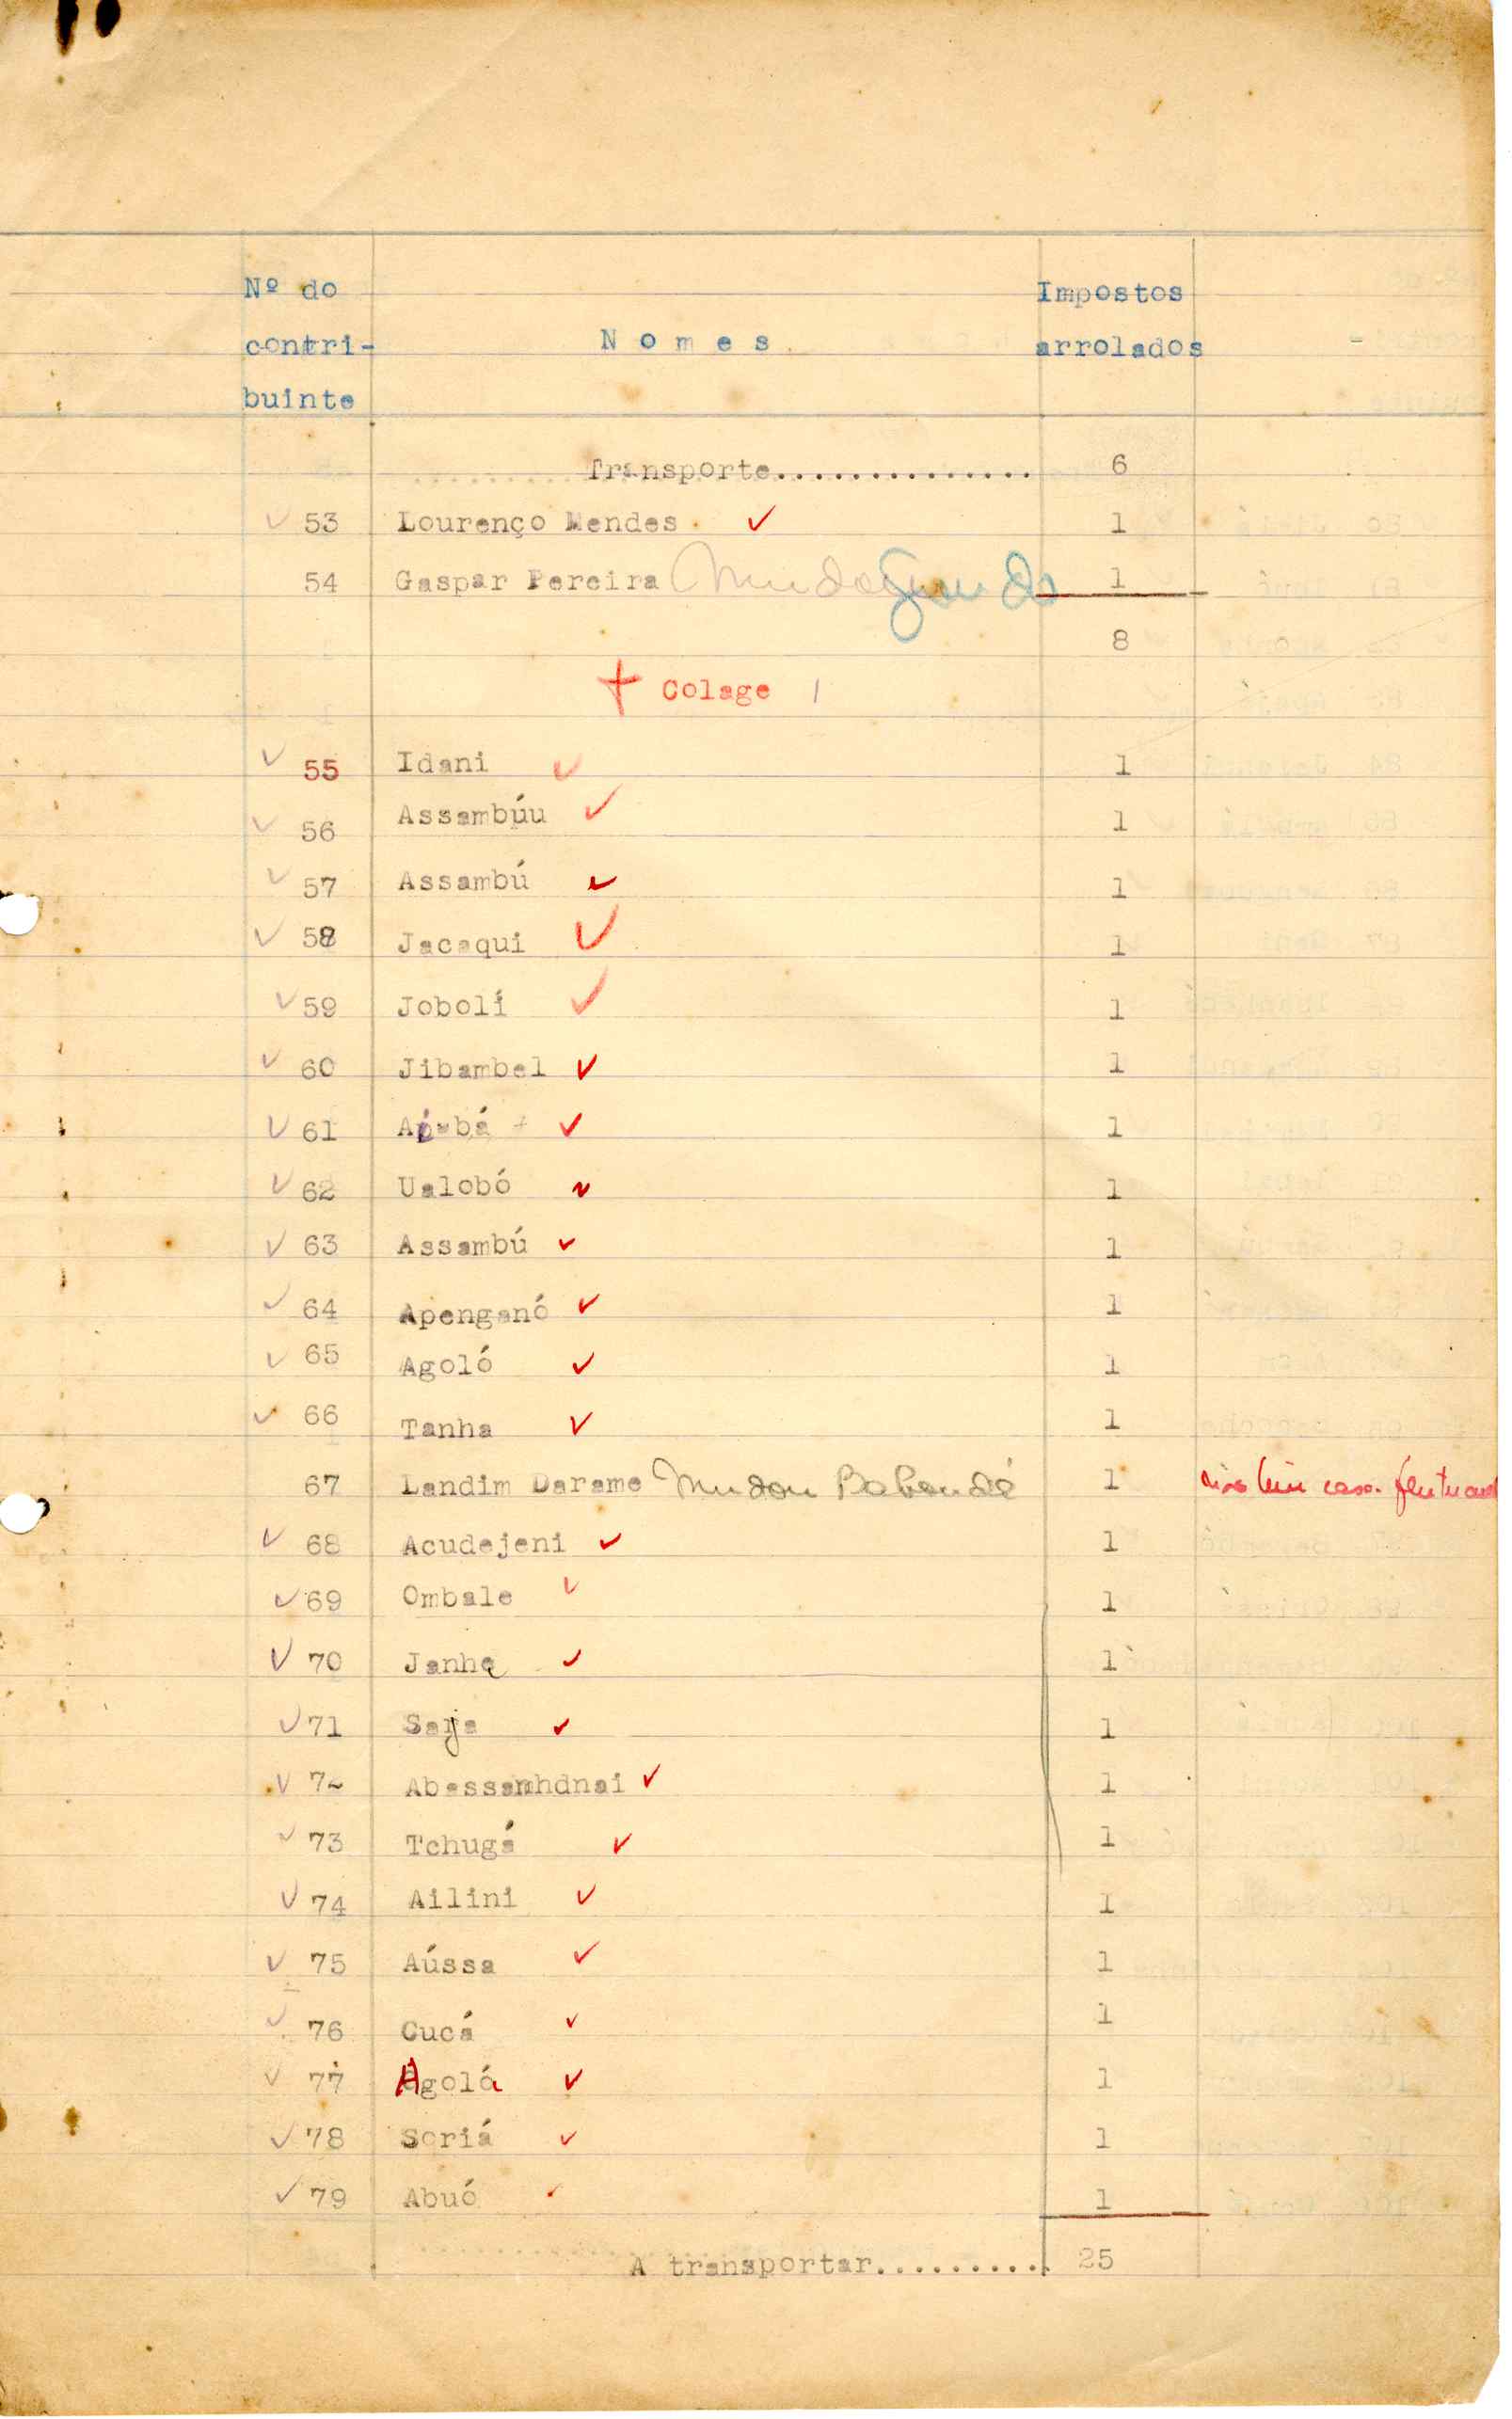 Nº do
contri-
buinte
N o m e s
Impostos
arrolados
Transporte.............. 6
✓ 53 Lourenço Mendes ✓ 1
54 Gaspar Pereira 1
8
+ Colage
✓ 55 Idani ✓ 1
✓ 56 Assambúu ✓ 1
✓ 57 Assambú ✓ 1
✓ 58 Jacaqui ✓ 1
✓ 59 Jobolí ✓ 1
✓ 60 Jibambel ✓ 1
✓ 61 ✓ 1
✓ 62 Ualobó ✓ 1
✓ 63 Assambú ✓ 1
✓ 64 Apenganó ✓ 1
✓ 65 Agoló ✓ 1
✓ 66 Tanha ✓ 1
67 Landim Darame Mudou 1 não tem casa.
✓ 68 Acudejeni ✓ 1
✓ 69 Ombale ✓ 1
✓ 70 Janha ✓ 1
✓ 71 Saja ✓ 1
✓ 72 ✓ 1
✓ 73 Tchugá ✓ 1
✓ 74 Ailini ✓ 1
✓ 75 Aússa ✓ 1
✓ 76 Cucá ✓ 1
✓ 77 Agolá ✓ 1
✓ 78 Soriá ✓ 1
✓ 79 Abuó ✓ 1
A transportar.......... 25